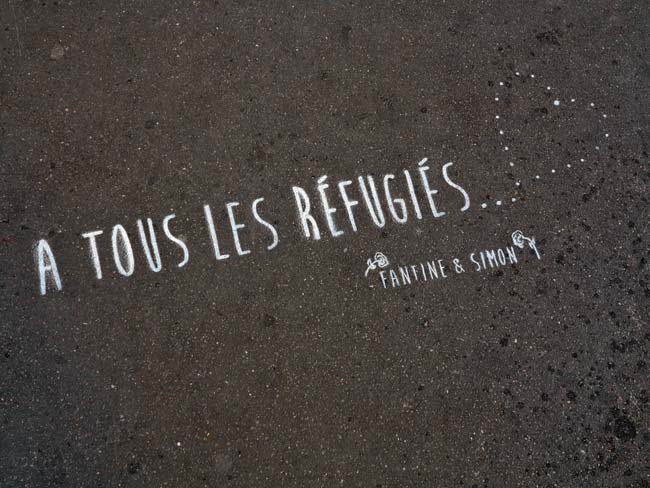 A TOUS LES RÉFUGIÉS...
FANTINE & SIMON